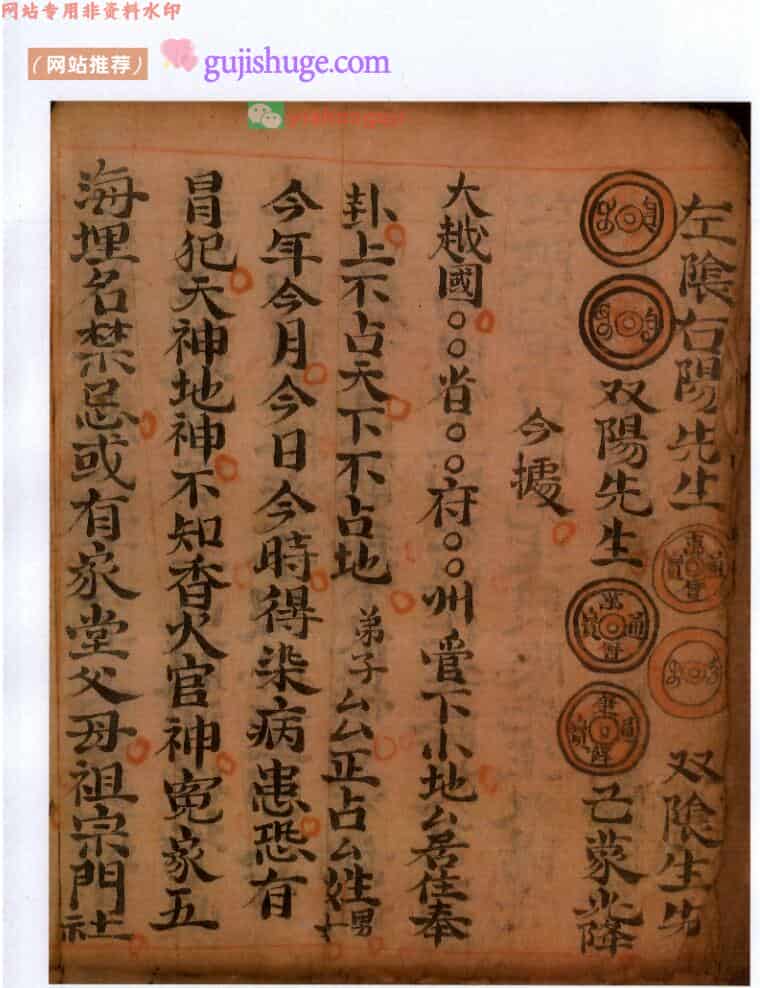 网站专用非资料水印
(网站推荐)
gujishuge.com
左陰右陽先生 双陰生先
双陽先生 已蒙光降
今據
大越國○○省○○府○○州官下小地厶居住奉
卦上不占天下不占地 弟子厶厶正占厶姓男女
今年今月今日今時得染病患恐有
冒犯天神地神不知香火官神冤家五
海埋名禁忌或有家堂父母祖宗門社